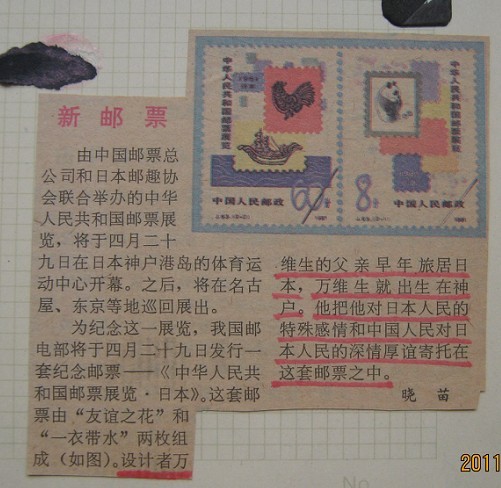 新邮票
由中国邮票总
公司和日本邮趣协
会联合举办的中华
人民共和国邮票展
览，将于四月二十
九日在日本神户港岛的体育运
动中心开幕。之后，将在名古
屋、东京等地巡回展出。
为纪念这一展览，我国邮
电部将于四月二十九日发行一
套纪念邮票——《中华人民共
和国邮票展览·日本》。这套邮
票由“友谊之花”和
“一衣带水”两枚组
成（如图）。设计者万
维生的父亲早年旅居日
本，万维生就出生在神
户。他把他对日本人民的
特殊感情和中国人民对日
本人民的深情厚谊寄托在
这套邮票之中。
晓苗
中华人民共和国邮票展览
60分
中国人民邮政
1981
中华人民共和国邮票展览
8分
中国人民邮政
1981
2011
No